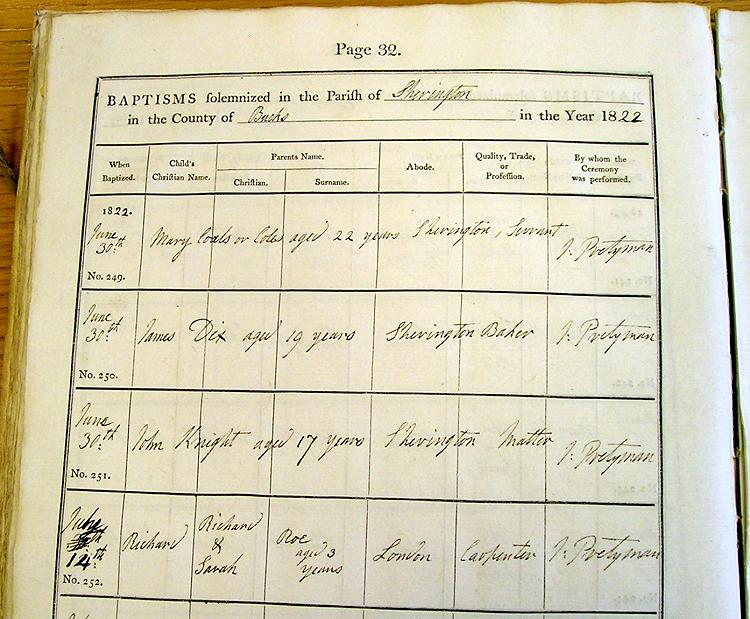 Page 32.
BAPTISMS solemnized in the Parish of Sherington
in the County of Bucks in the Year 1822
When Baptized. Child's Christian Name. Parents Name. Abode. Quality, Trade, or Profession. By whom the Ceremony was performed.
Christian. Surname.
1822.
June 30.th Mary Coals or Coles aged 22 years Sherington, Servant J. Pretyman
No. 249.
June 30.th James Dix aged 19 years Sherington Baker J. Pretyman
No. 250.
June 30.th John Knight aged 17 years Sherington Matter J. Pretyman
No. 251.
July 14.th Richard Richard & Sarah Roe aged 3 years London Carpenter J. Pretyman
No. 252.